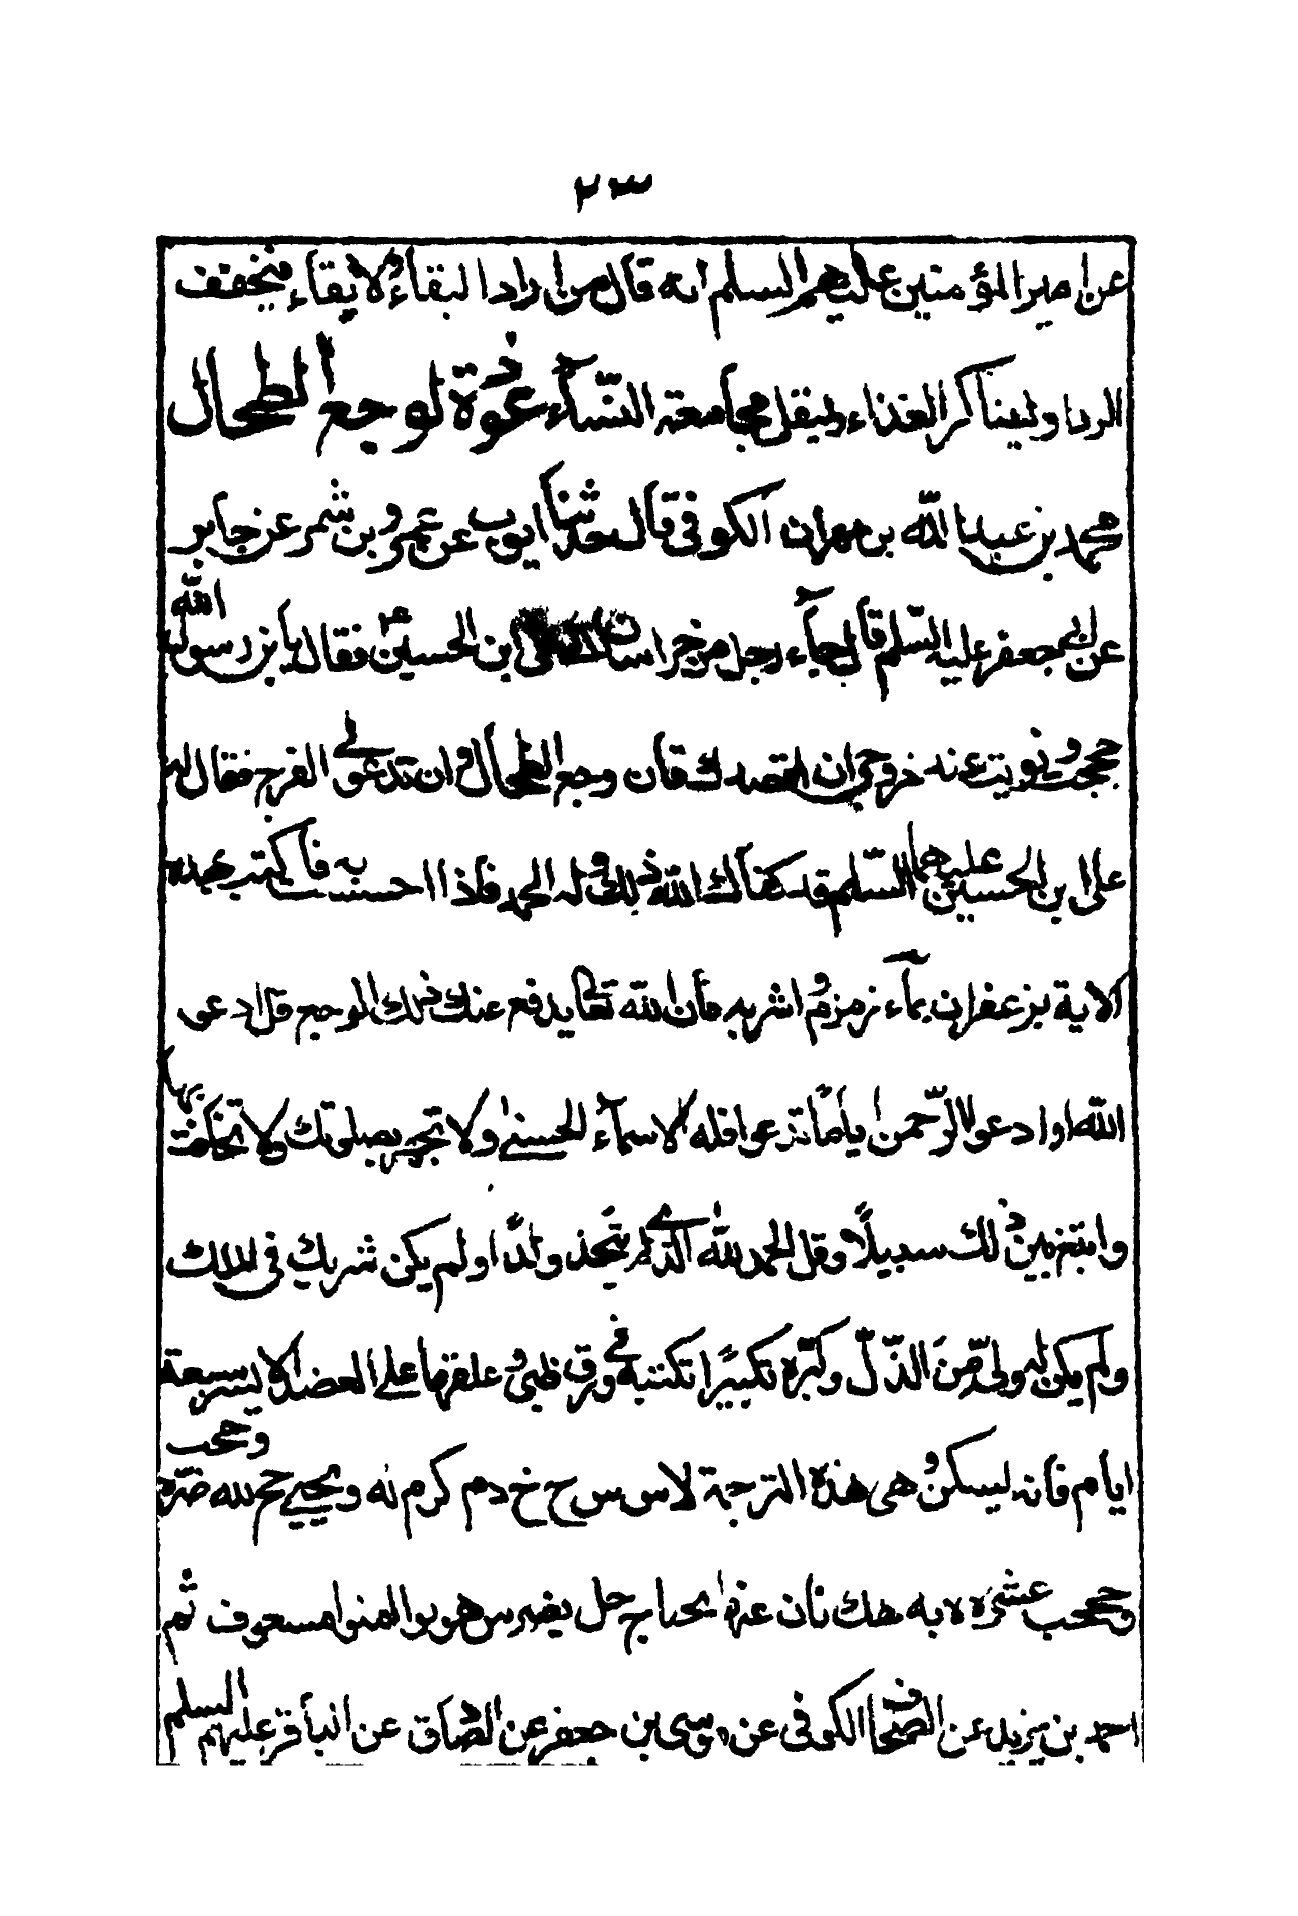 ٢٣
عن امير المؤمنين عليهم السلم انه قال من اراد البقاء ولا بقاء فيخفف
الردا وليباكر الغذاء وليقل مجامعة النسآء عوذة لوجع الطحال
محمد بن عبد الله بن مهران الكوفى قال حدثنا ايوب عن عمرو بن شمر عن جابر
عن ابى جعفر عليه السلم قال جآء رجل من خراسان الى على ابن الحسين ع فقال يا بن رسول الله
حججت ونويت عند خروجى ان اقصدك فان وجع الطحال وان تدعو لى الفرج فقال له
على ابن الحسين عليهما السلم قد كفاك الله ذلك وله الحمد فاذا احسست به فاكتب هذه
الاية بزعفران بمآء زمزم واشربه فان الله تعالى يدفع عنك ذلك الوجع قل ادعو
الله او ادعوا الرحمن اياما تدعوا فله الاسمآء الحسنى ولا تجهر بصلوتك ولا تخافت بها
وابتغ بين ذلك سبيلا وقل الحمد لله الذى لم يتخذ ولدا ولم يكن شريك فى الملك
ولم يكن له ولى من الذل وكبره تكبيرا تكتبه فى ورق ظبى وعلقها على العضد الايسر سبعة
ايام فانه ليسكن وهى هذه الترجمة لا س س ح خ دم كرم له ويحيى حج لله صره
وحجب عشره ه به هك بان عنها يحتاج حل يصرس هو بوا امنوا مسعوف ثم
احمد بن يزيد عن الضحا الكوفى عن موسى بن جعفر عن الصادق عن الباقر عليهم السلم